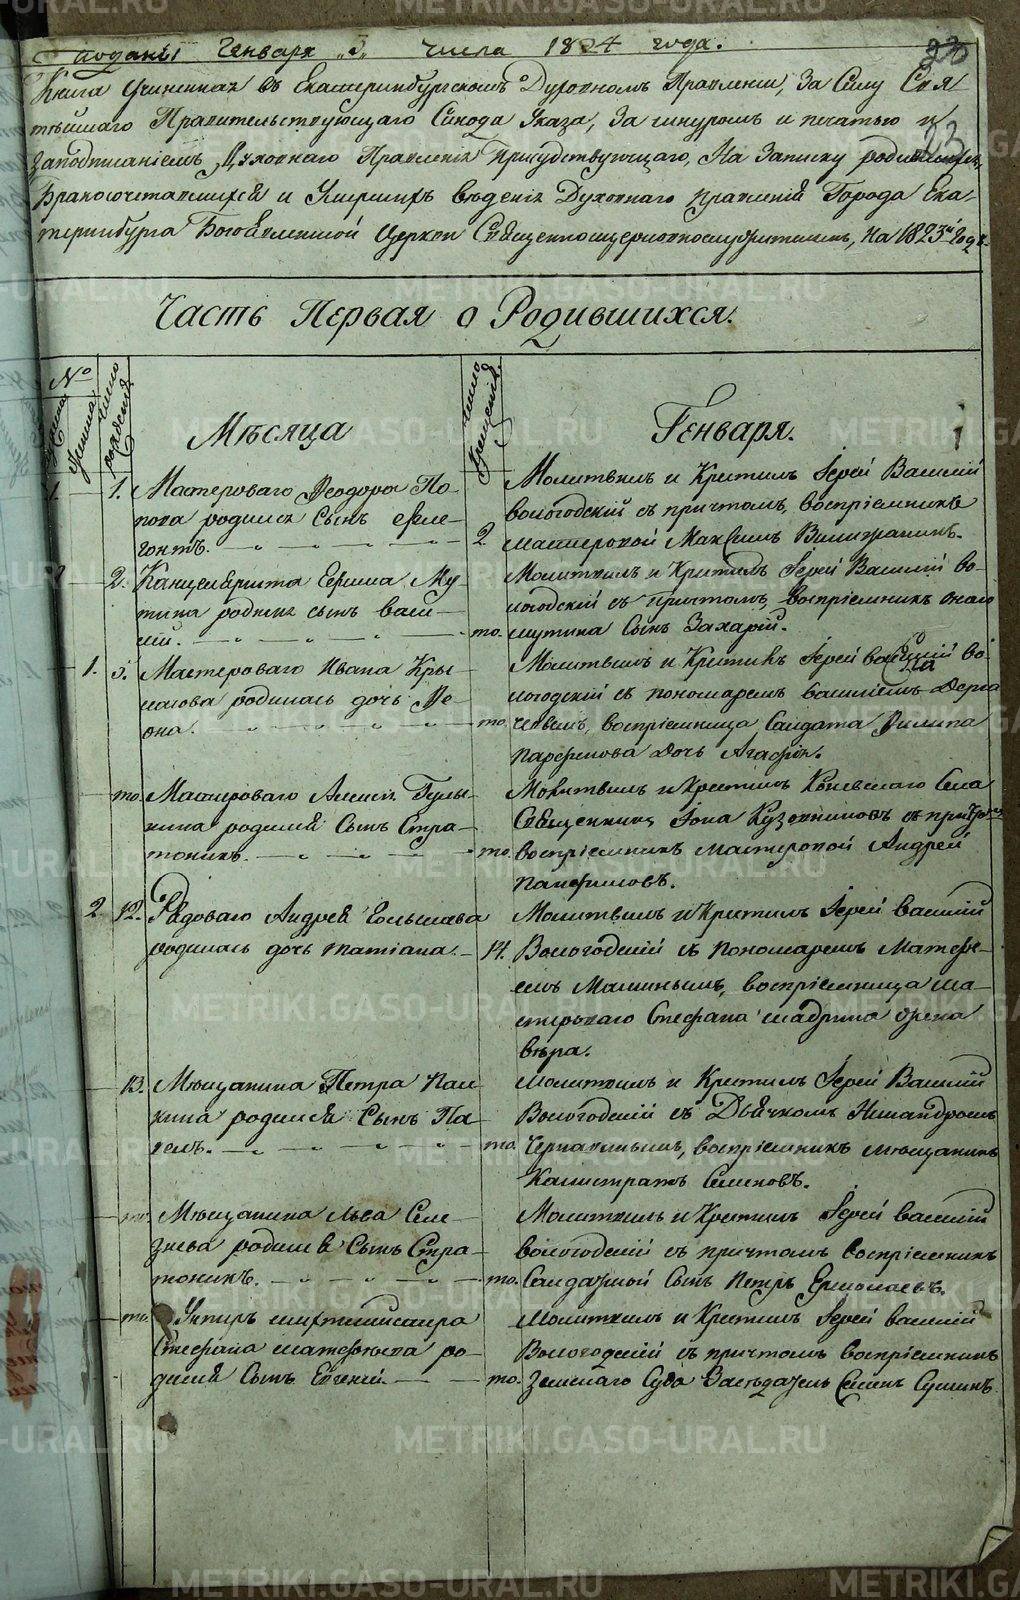 поданы Генваря 5 числа 1824 года.
Книга Учиненная въ Екатеринбургскомъ Духовномъ Правленіи, За Силу Свя
тѣйшаго Правительствующаго Синода Указа, За шнуромъ и печатью и
заподписаніемъ Духовнаго Правленія Присудствующаго, На Записку родившихся,
Бракосочетавшихся и Умершихъ вѣденія Духовнаго правленія Города Ека-
теринбурга Богоявленской Церкви Священноцерковнослужителямъ, На 1823й Годъ.
23
Часть Первая о Родившихся.
№
число рожденія
Мѣсяца
число крещенія
Генваря.
1. 1. Мастероваго Ѳеодора По-
пова родился сынъ Фле-
гонтъ. 2
Молитвилъ и Крестилъ Іерей Василій
вологодскій съ причтомъ, воспріемникъ
мастеровой Максимъ
2. Канцеляриста Ермила Му-
тина родился сынъ васи-
лій. то.
Молитвилъ и Крестилъ Іерей Василій во-
логодскій съ причтомъ, воспріемникъ онаго
мутина Сынъ Захарій.
1. 5. Мастероваго Ивана Кры-
лосова родилась дочь Ѳе-
она. то.
Молитвилъ и Крестилъ Іерей василій во-
логодскій съ пономаремъ василіемъ Дерга
чевымъ, воспріемница Салдата Филипа
парфенова дочь Агафія.
то. Мастероваго Алексія Гулы-
кина родился Сынъ Стра-
тоникъ. то.
Молитвилъ и Крестилъ Села
Священникъ Іона Кузовниковъ съ причтомъ
воспріемникъ мастеровой Андрей
панфиловъ.
2 12. Рядоваго Андрея
родилась дочь татіана. 14.
Молитвилъ и Крестилъ Іерей василій
Вологодскій съ пономаремъ Матфе-
емъ воспріемница ма-
стероваго Стефана шадрина жена
вѣра.
13. Мѣщанина Петра пал-
кина родился Сынъ Па-
велъ. то.
Молитвилъ и Крестилъ Іерей Василій
Вологодскій съ Дьячкомъ Никандромъ
Чернавинымъ, воспріемникъ мѣщанинъ
Калистратъ Семеновъ.
то. Мѣщанина Льва Селе-
знева родился Сынъ Стра-
тоникъ. то.
Молитвилъ и Крестилъ Іерей василій
вологодскій съ причтомъ воспріемникъ
Салдатской Сынъ Петръ Ермолаевъ.
то. Унтеръ шихтмейстера
Стефана матфеева ро-
дился Сынъ Евгеній. то.
Молитвилъ и Крестилъ Іерей василій
Вологодскій съ причтомъ воспріемникъ
Земскаго Суда Засѣдатель Семенъ Сушинъ.
METRIKI.GASO-URAL.RU